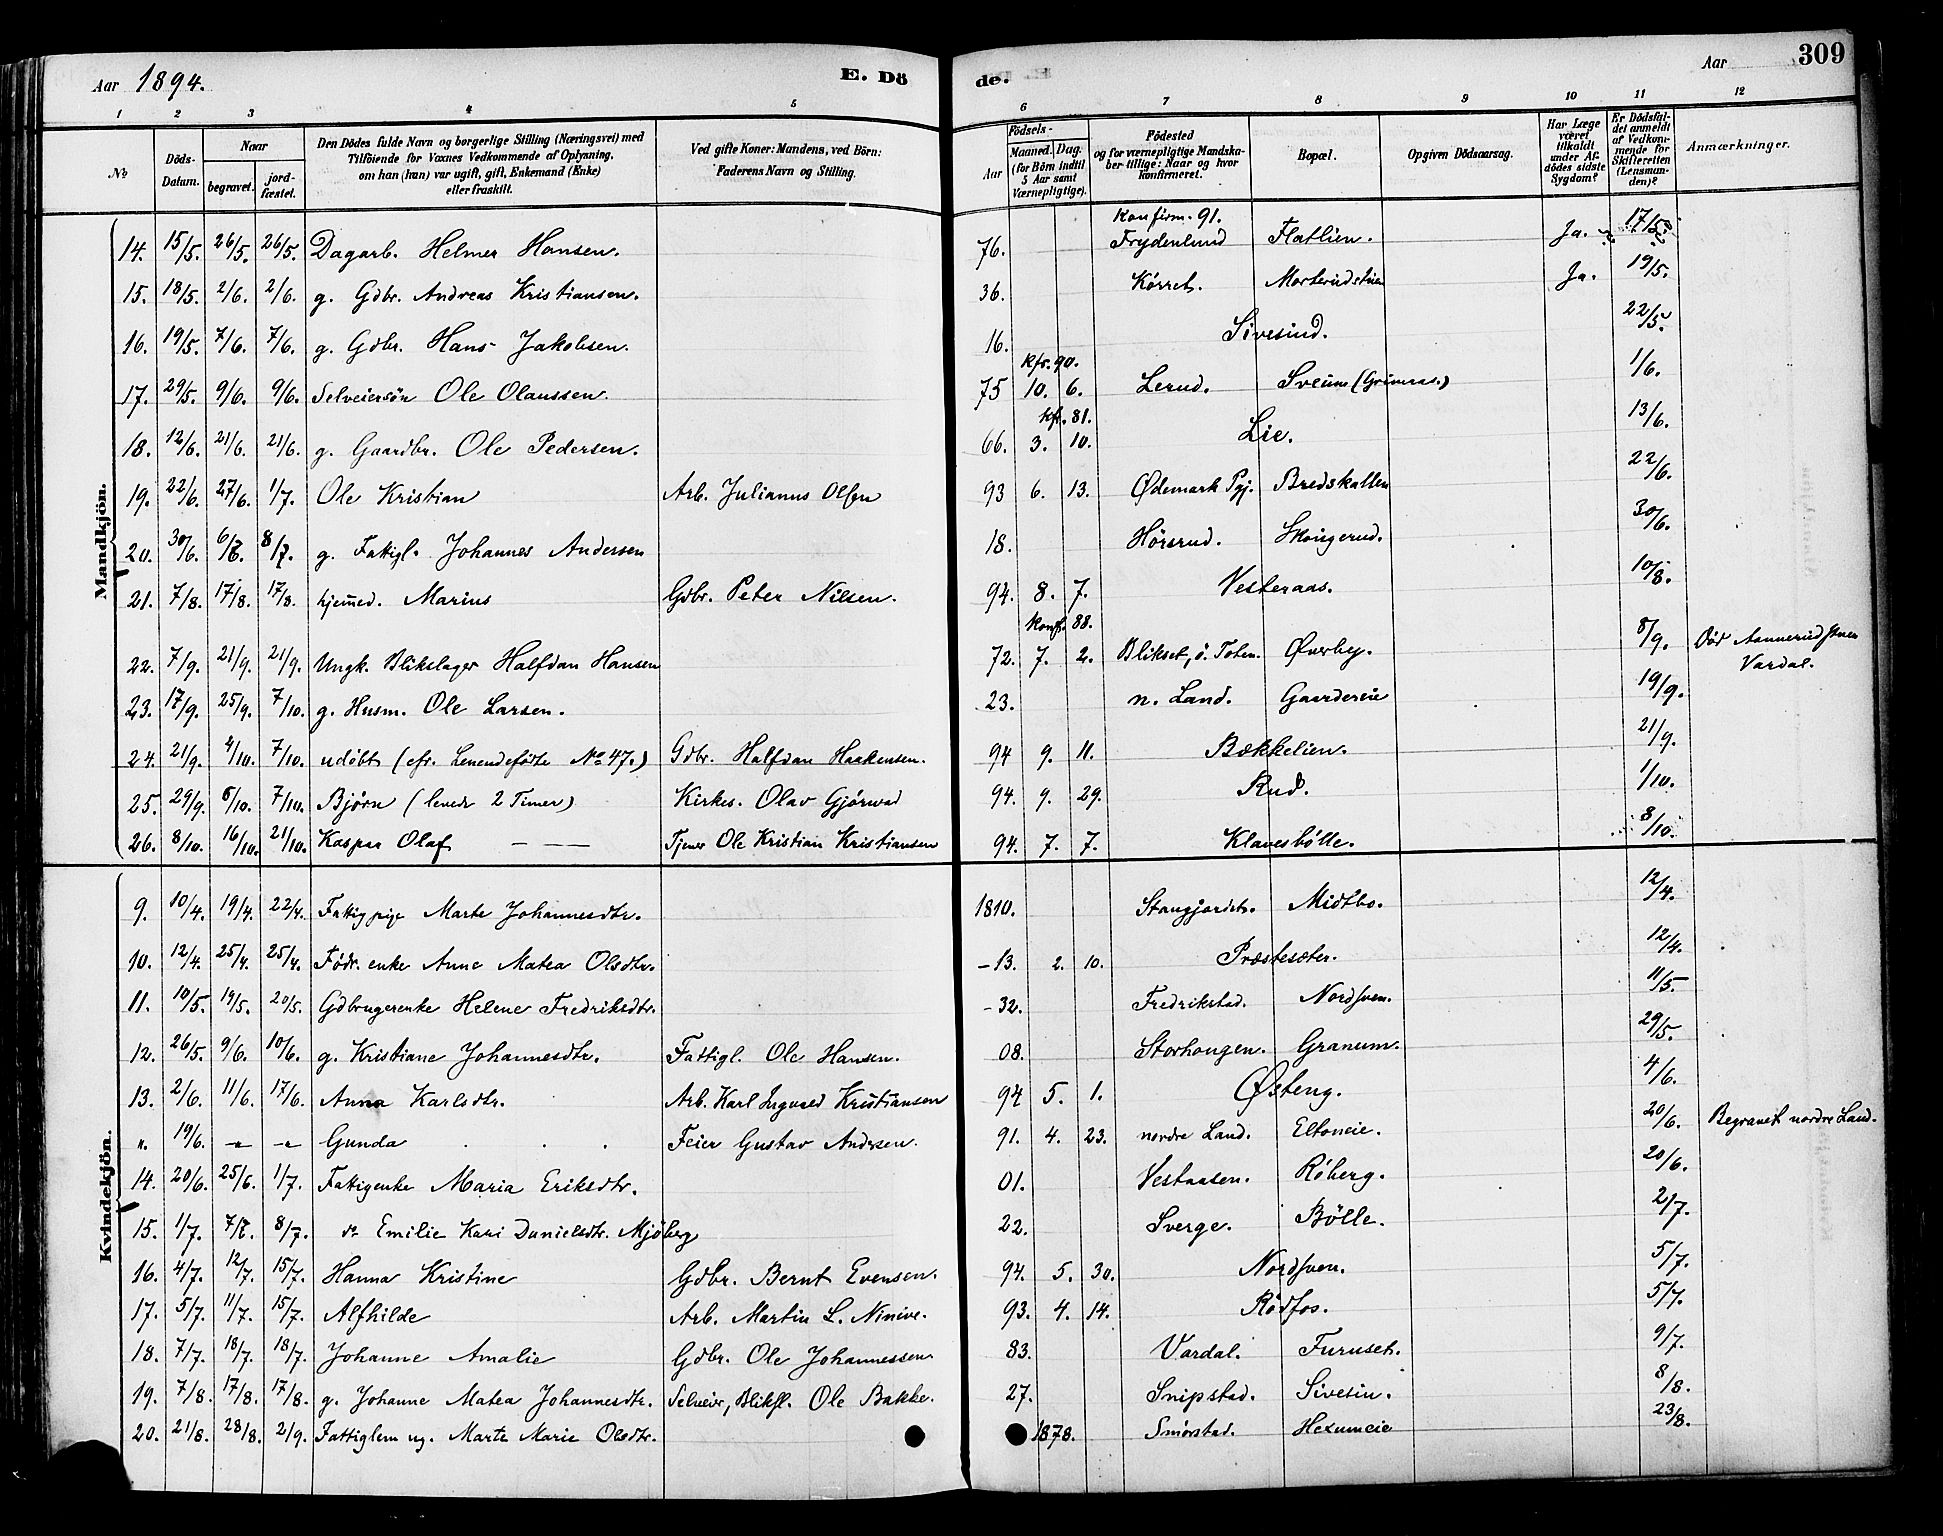 Aar 1894. E. Dö de. Aar 309
1 2 3 4 5 6 7 8 9 10 11 12
No
Döds-Datum.
Naar
begravet.
jord-fæstet.
Den Dödes fulde Navn og borgerlige Stilling (Næringsvei) med
Tilföiende for Voxnes Vedkommende af Oplysning,
om han (hun) var ugift, gift, Enkemand (Enke)
eller fraskilt.
Ved gifte Koner: Mandens, ved Börn:
Faderens Navn og Stilling.
Födsels-
Aar
Maaned. Dag.
(for Börn indtil
5 Aar samt
Værnepligtige).
Födested
og for værnepligtige Mandska-
ber tillige: Naar og hvor
konfirmeret.
Bopæl.
Opgiven Dödsaarsag.
Har Læge
været
tilkaldt
under Af-
dödes sidste
Sygdom?
Er Dödsfal-
det anmeldt
af Vedkom-
mende for
Skifteretten
(Lensman-
den)?
Anmærkninger.
Mandkjön.
Konfirm. 91.
14. 15/5. 26/5. 26/5. Dagarb. Helmer Hansen. 76. Frydenlund Flatlien. Ja. 17/5.
15. 18/5. 2/6. 2/6. g. Gdbr. Andreas Kristiansen. 36. Körret. Morterudstuen Ja. 19/5.
16. 19/5. 7/6. 7/6. g. Gdbr. Hans Jakobsen. 16. Sivesind. 22/5.
kfr. 90.
17. 29/5. 9/6. 9/6. Selveiersön Ole Olaussen. 75 10. 6. Lerud. Sveum (Grimeras.) 1/6.
kfr. 81.
18. 12/6. 21/6. 21/6. g. Gaardbr. Ole Pedersen. 66. 3. 10. Lie. 13/6.
19. 22/6. 27/6. 1/7. Ole Kristian Arb. Julianus Olsen 93 6. 13. Ødemark Pgj. Bredskallen 22/6.
20. 30/6. 6/7. 8/7. g. Fattigl. Johannes Andersen 18. Hörsrud. Skougerud. 30/6.
21. 7/8. 17/8. 17/8. hjemmed. Marius Gdbr. Peter Nilsen. 94. 8. 7. Vesteraas. 10/8.
Konf. 88.
22. 7/9. 21/9. 21/9. Ungk. Blikslager Halfdan Hansen 72. 7. 2. Blikset, ö. Toten. Øverby. 8/9. Död Aannerud stuen
Vardal.
23. 17/9. 25/9. 7/10. g. Husm. Ole Larsen. 23. n. Land. Gaardereie 19/9.
24. 21/9. 4/10. 7/10. udöbt (cfr. Levendefödte No 47.) Gdbr. Halfdan Haakensen. 94 9. 11. Bækkelien. 21/9.
25. 29/9. 6/10. 7/10. Björn (levede 2 Timer) Kirkes. Olav Gjörwad 94. 9. 29. Rud. 1/10.
26. 8/10. 16/10. 21/10. Kaspar Olaf Tjener Ole Kristian Kristiansen 94. 7. 7. Klavesbölle. 8/10.
Kvindekjön.
9. 10/4. 19/4. 22/4. Fattigpige Marte Johannesdtr. 1810. Stangjordet. Midtbo. 12/4.
10. 12/4. 25/4. 25/4. Födr. enke Anne Matea Olsdtr. -13. 2. 10. Præstesæter. 12/4.
11. 10/5. 19/5. 20/5. Gdbrugerenke Helene Fredriksdtr. -32. Fredrikstad. Nordsven. 11/5.
12. 26/5. 9/6. 10/6. g. Kristiane Johannesdtr. Fattigl. Ole Hansen. 08. Storhougen. Granum. 29/5.
13. 2/6. 11/6. 17/6. Anna Karlsdtr. Arb. Karl Ingvald Kristiansen 94 5. 1. Østeng. 4/6.
". 19/6. -"- -"- Gunda Feier Gustav Andersen. 91. 4. 23. nordre Land. Eltoneie. 20/6. Begravet nordre Land.
14. 20/6. 25/6. 1/7. Fattigenke Maria Eriksdtr. 01. Vestaasen. Röberg. 20/6.
15. 1/7. 7/7. 8/7. do Emilie Kari Danielsdtr. Mjöberg 22. Sverge. Bölle. 2/7.
16. 4/7. 12/7. 15/7. Hanna Kristine Gdbr. Bernt Evensen. 94. 5. 30. Nordsven. 5/7.
17. 5/7. 11/7. 15/7. Alfhilde Arb. Martin L. Ninive. 93. 4. 14. Rödfos. 5/7.
18. 7/7. 18/7. 18/7. Johanne Amalie Gdbr. Ole Johannessen. 83. Vardal. Furuset. 9/7.
19. 7/8. 17/8. 17/8. g. Johanne Matea Johannesdtr. Selveier, Bliksl. Ole Bakke. 27. Snipstad. Sivesin. 8/8.
20. 21/8. 28/8. 2/9. Fattiglem ug. Marte Marie Olsdtr. 1878. Smörstad. Hexumeie 23/8.